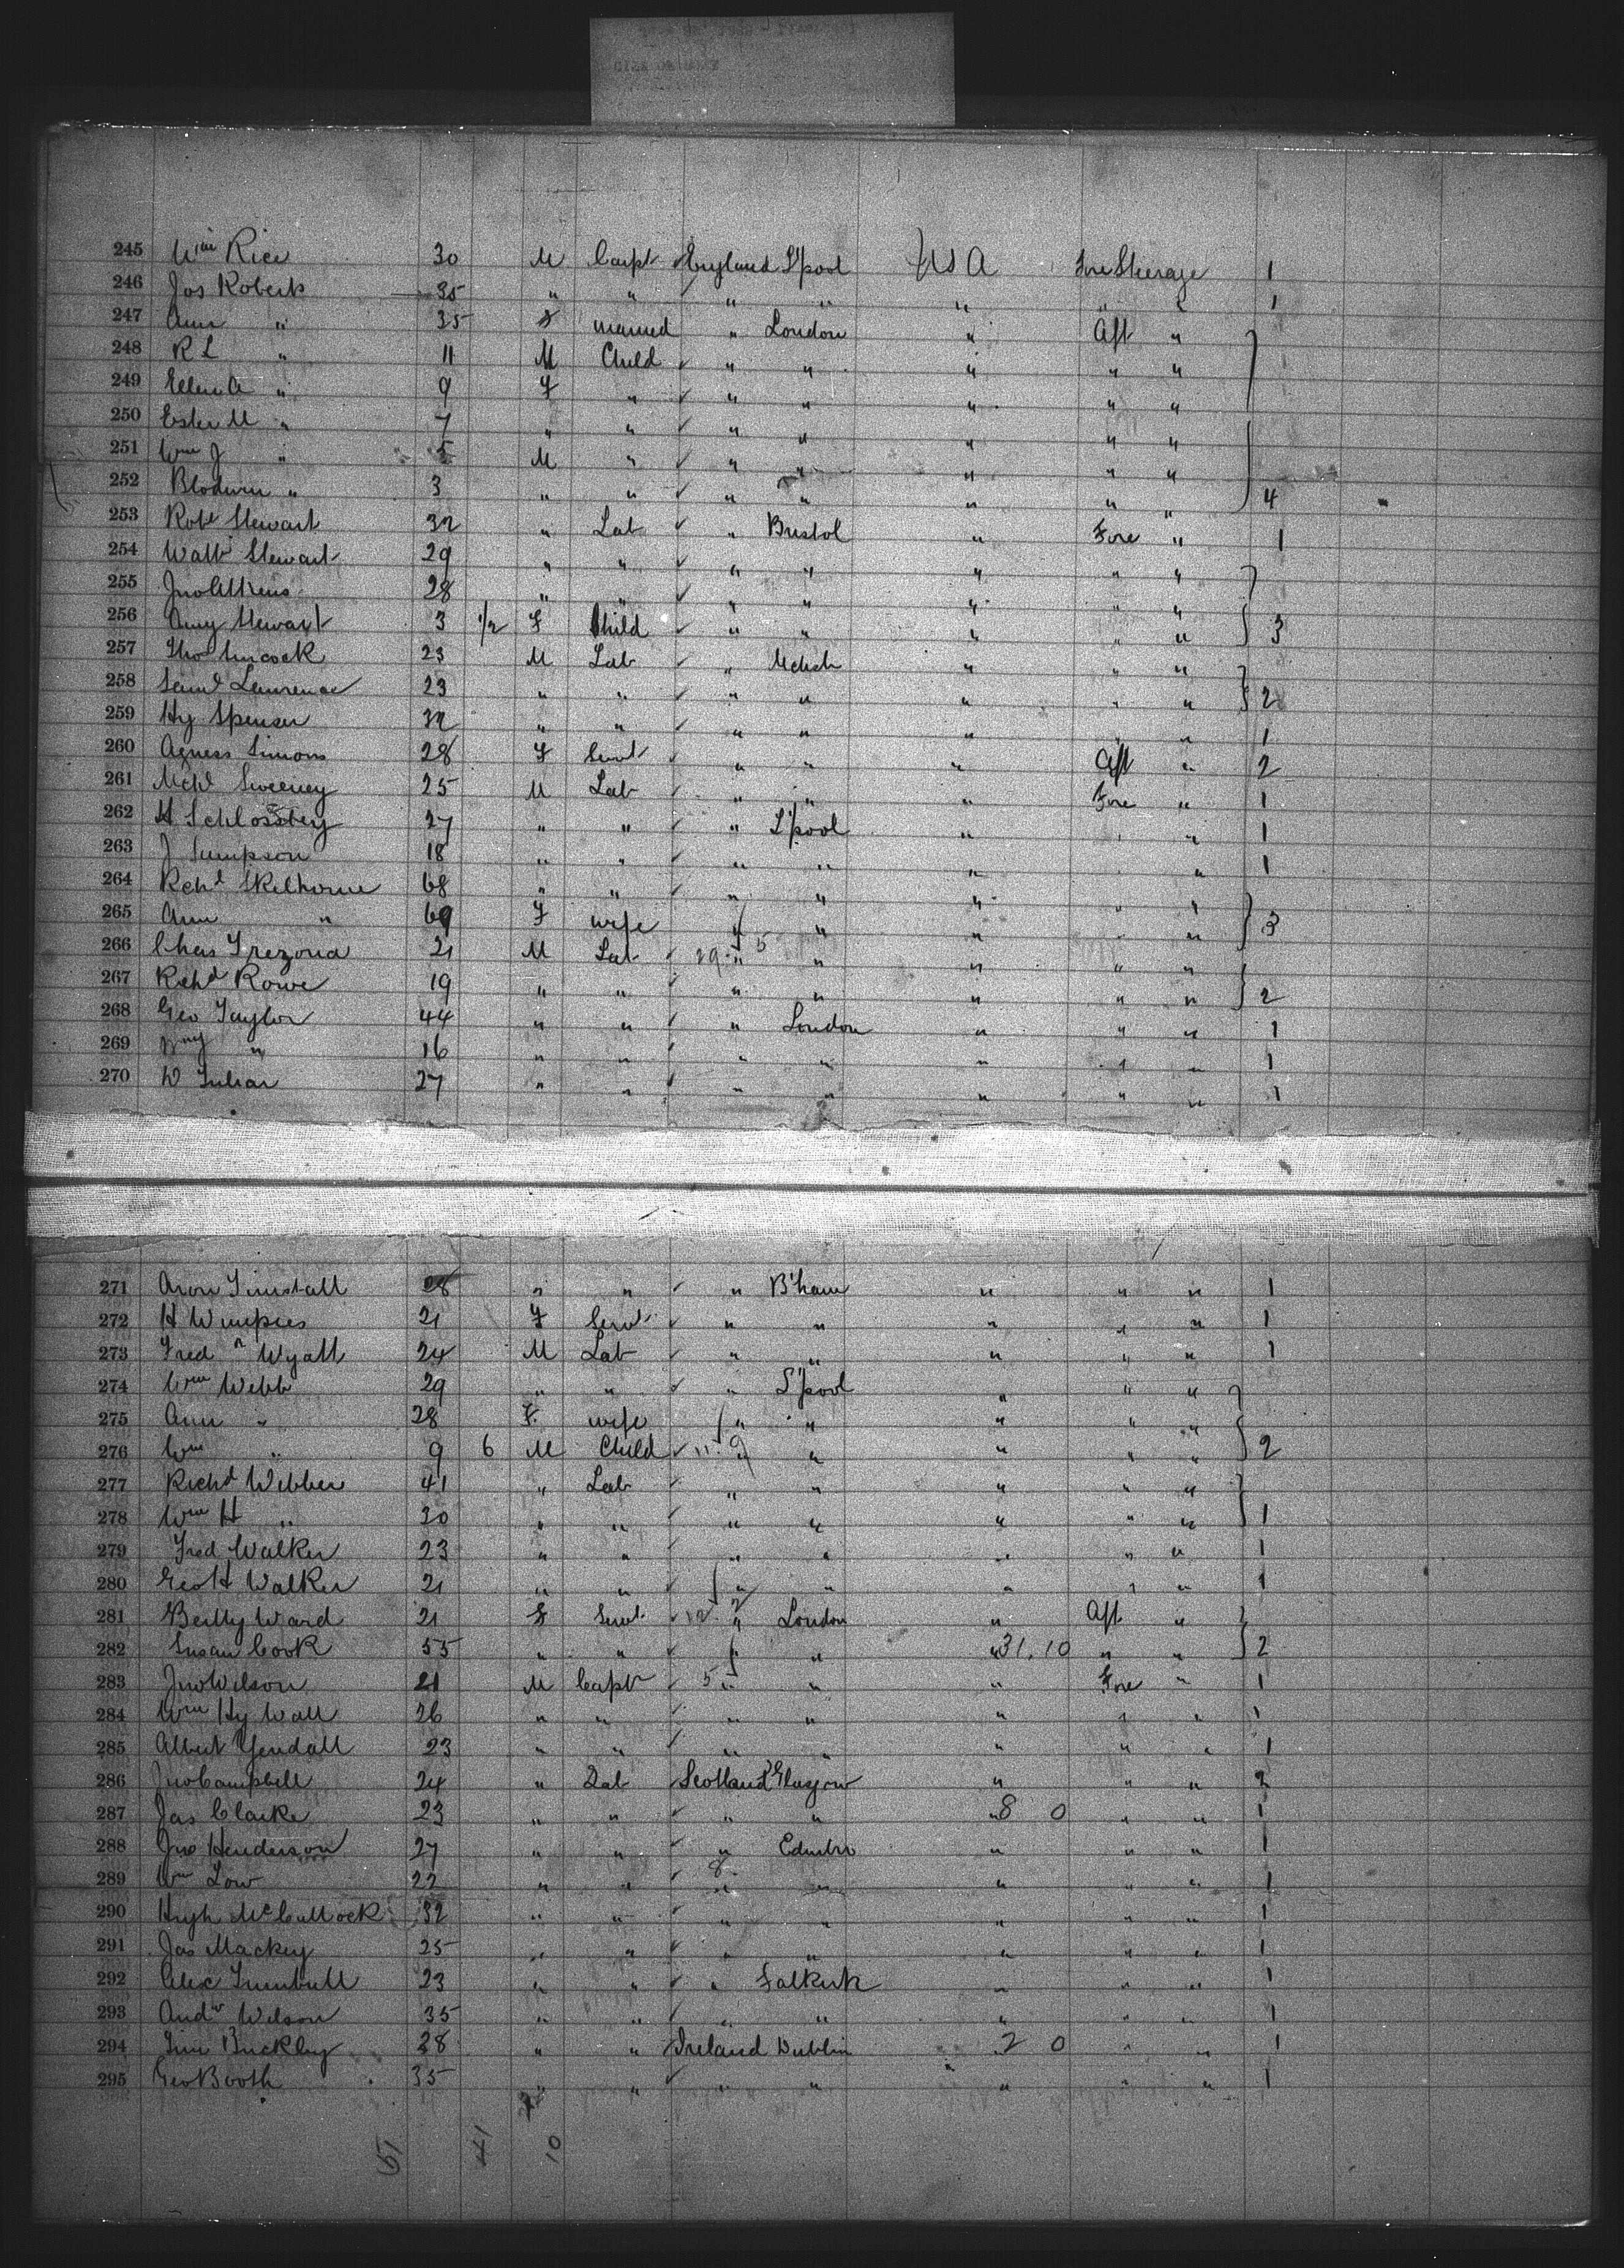 245 Wm Rice 30 M Carpt England L'pool USA Fore Steerage 1
246 Jos Roberts 35 " " " " " " " 1
247 Ann " 35 F married " London " Aft "
248 R L " 11 M Child " " " " "
249 Ellen A " 9 F " " " " " "
250 Ester M " 7 " " " " " " "
251 Wm J " 5 M " " " " " "
252 Blodwen " 3 " " " " " " " 4
253 Robt Stewart 32 " Lab " Bristol " Fore " 1
254 Walt Stewart 29 " " " " " " "
255 Jno Atkins 28 " " " " " " "
256 Amy Stewart 3 1/2 F Child " " " " " 3
257 Tho 23 M Lab " " " "
258 Saml Laurence 23 " " " " " " " 2
259 Hy Spenser 32 " " " " " " 1
260 Agness Simons 28 F Servt " " " Aft " 2
261 Mchl Sweeney 25 M Lab " " " Fore " 1
262 H Schlossberg 27 " " " L'pool " " " 1
263 J Simpson 18 " " " " " " 1
264 Richd Skelhorne 68 " " " " " " "
265 Ann " 69 F wife " " " " " 3
266 Chas Trezona 21 M Lab 29 " 5 " " " "
267 Richd Rowe 19 " " " " " " " 2
268 Geo Taylor 44 " " " London " " " 1
269 " 16 " " " " " " " 1
270 W 27 " " " " " " 1
271 Aron Tunstall 28 " " " B'ham " " " 1
272 H 21 F Servt " " " " " 1
273 Fred A Wyatt 24 M Lab " " " " " 1
274 Wm Webb 29 " " " L'pool " " "
275 Ann " 28 F wife " " " " "
276 Wm " 9 6 M Child 11 " 9 " " " " 2
277 Richd Webber 41 " Lab " " " " "
278 Wm H " 20 " " " " " " " 1
279 Fred Walker 23 " " " " " " " 1
280 Geo H Walker 21 " " " " " " " 1
281 Betty Ward 21 F Servt 12 " 2 London " Aft "
282 Susan Cook 55 " " " " " 31.10 " " 2
283 Jno Wilson 21 M Capt 5 " " " Fore " 1
284 Wm Hy Wall 26 " " " " " " " 1
285 Albert Yendall 23 " " " " " " 1
286 Jno Campbell 24 " Lab Scotland Glasgow " " " 2
287 Jas Clarke 23 " " " " " 8 0 " " 1
288 Jno Henderson 27 " " " Edinbro " " " 1
289 Wm Low 22 " " 8 " " " " " 1
290 Hugh McCullock 32 " " " " " " " 1
291 Jas Mackey 25 " " " " " " " 1
292 Alex Turnbull 23 " " " Falkirk " " " 1
293 Andw Wilson 35 " " " " " " 1
294 Tim Buckley 38 " " Ireland Dublin " 2 0 " " 1
295 Geo Booth 35 " " " " " " " 1
51 41 10